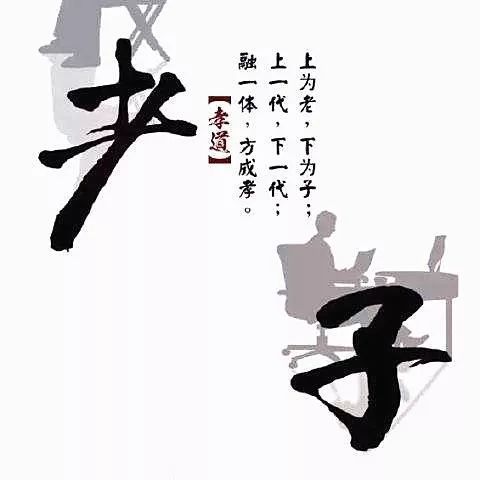 耂
子
上为老，下为子；
上一代，下一代；
融一体，方成孝。
【孝道】